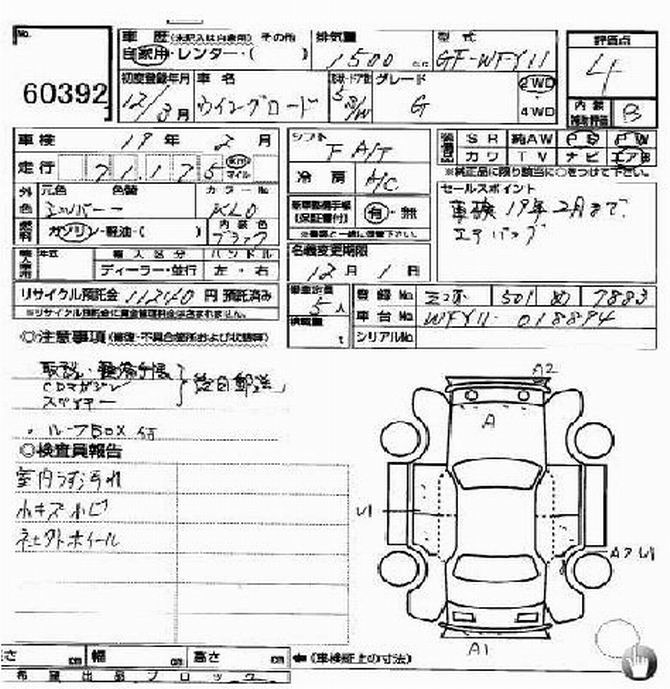 No.
60392
車歴 (未記入は自家用) その他
自家用・レンター・( )
排気量
1500 c.c.
型式
GF-WFY11
評価点
4
内装
補助評価 B
初度登録年月
12/3月
車名
ウイングロード
形状・ドア数
5D/W
グレード
G
2WD
4WD
車検 19年 2月
走行 71,175 km マイル
外色 元色 色替 カラーNo.
シルバー KL0
燃料 ガソリン・軽油・( )
内装色
ブラック
輸入車用 年式 輸入区分 ハンドル
ディーラー・並行 左・右
リサイクル預託金 11240 円 預託済み
※リサイクル預託金に資金管理料金は含まれません。
シフト FA/T
冷房 A/C
新車整備手帳
(保証書付) 有・無
名義変更期限
12月 1日
乗車定員
5人
積載量
t
装備品 SR 純AW PS PW
カワ TV ナビ エアB
※純正品に限り該当に○をつけて下さい。
セールスポイント
車検19年2月まで
エアバッグ
登録No. 三河 501 め 7883
車台No. WFY11-018894
シリアルNo.
◎注意事項 (修復・不具合箇所および状態等)
取説・整備手帳
CDマガジン
スペアキー
後日郵送
・ルーフBOX付
◎検査員報告
室内うす汚れ
小キズ小凹
社外ホイール
A2
A
U1
A2 U1
A1
長さ cm 幅 cm 高さ cm ←(車検証上の寸法)
希望出品ブロック